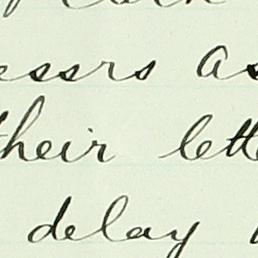 essrs as
their lette
delay